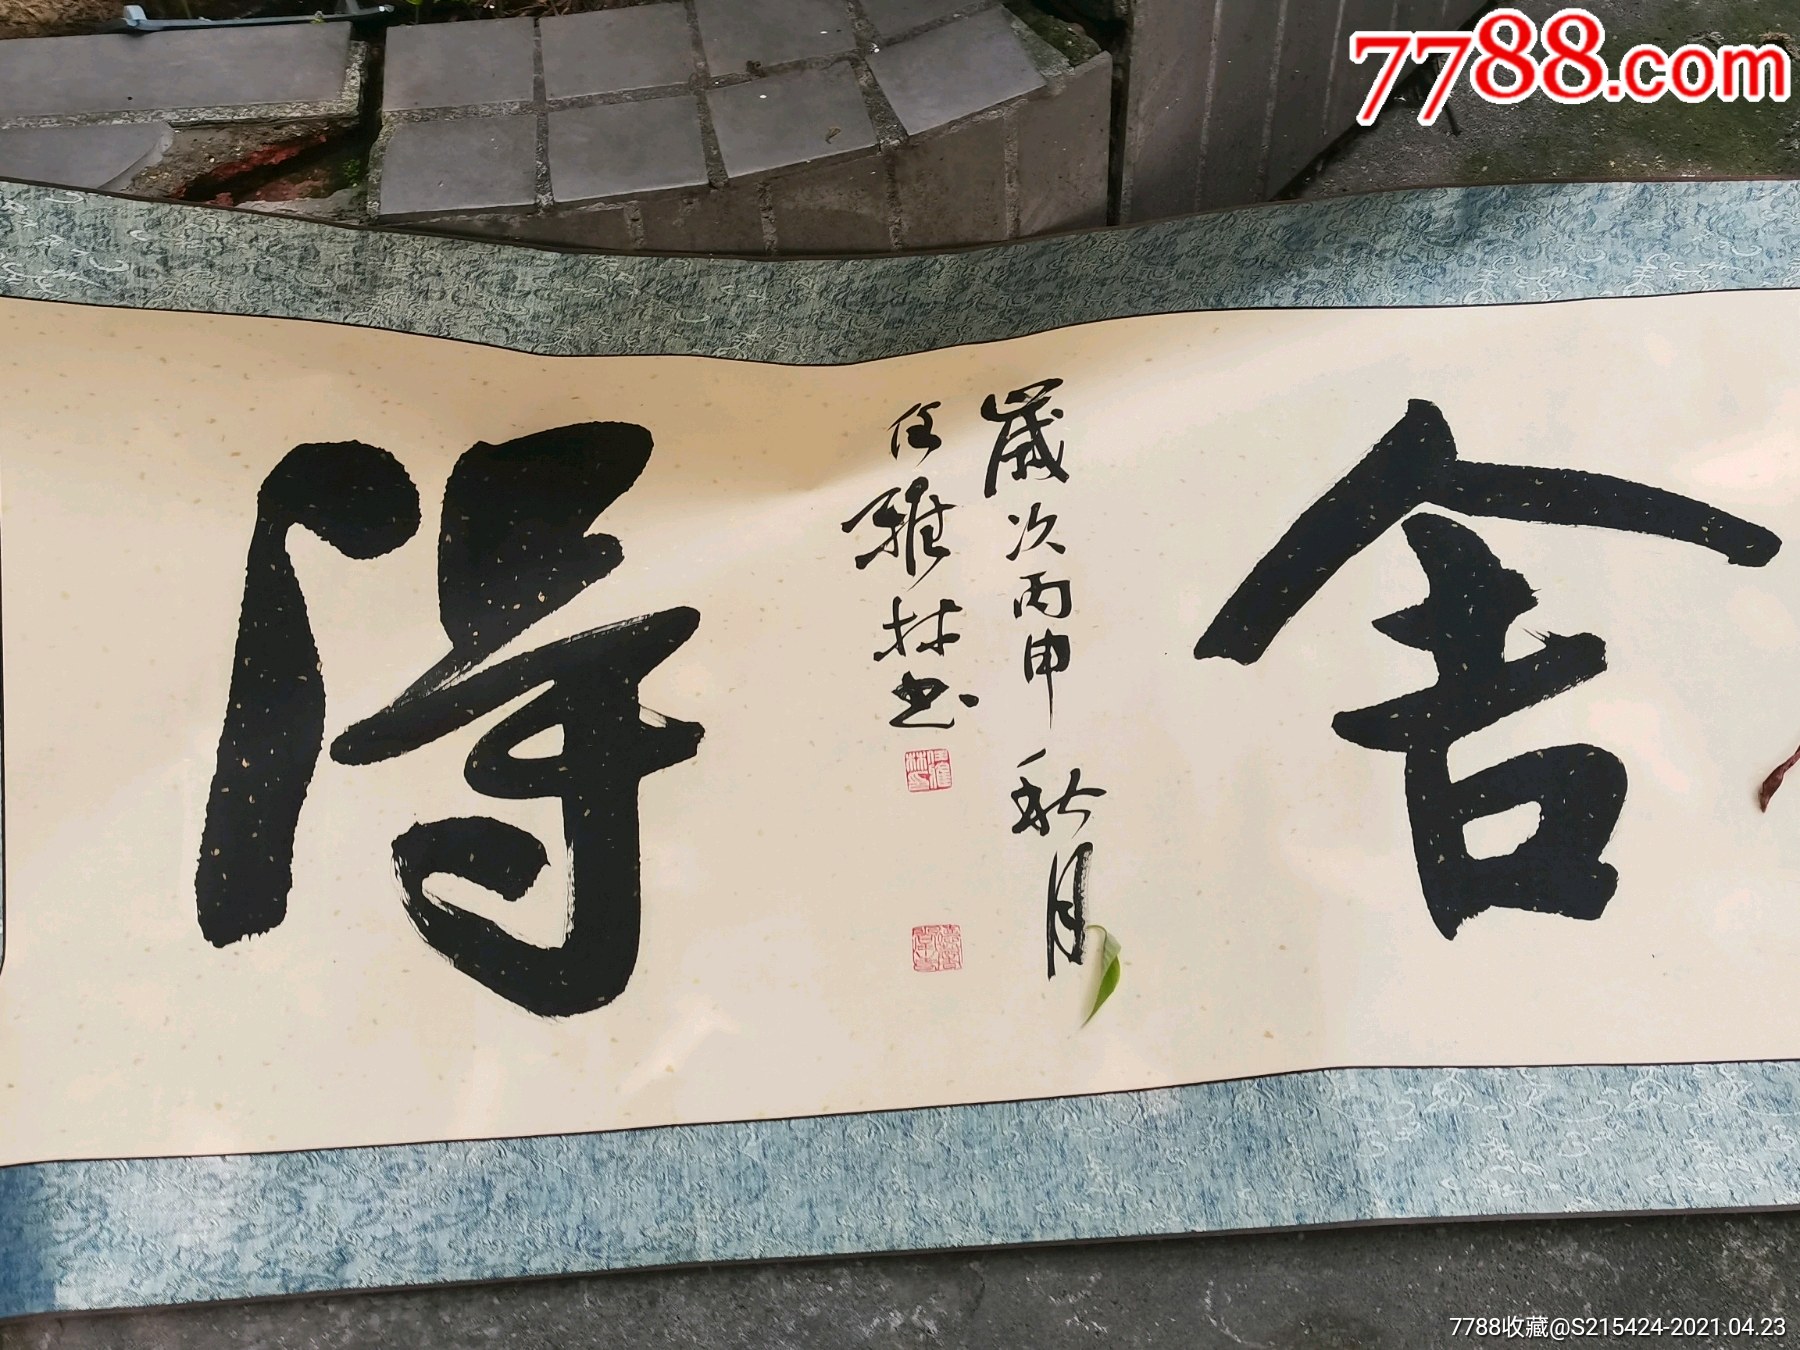 7788.com
舍
歲次丙申秋月
任雅林书
得
7788收藏@S215424-2021.04.23